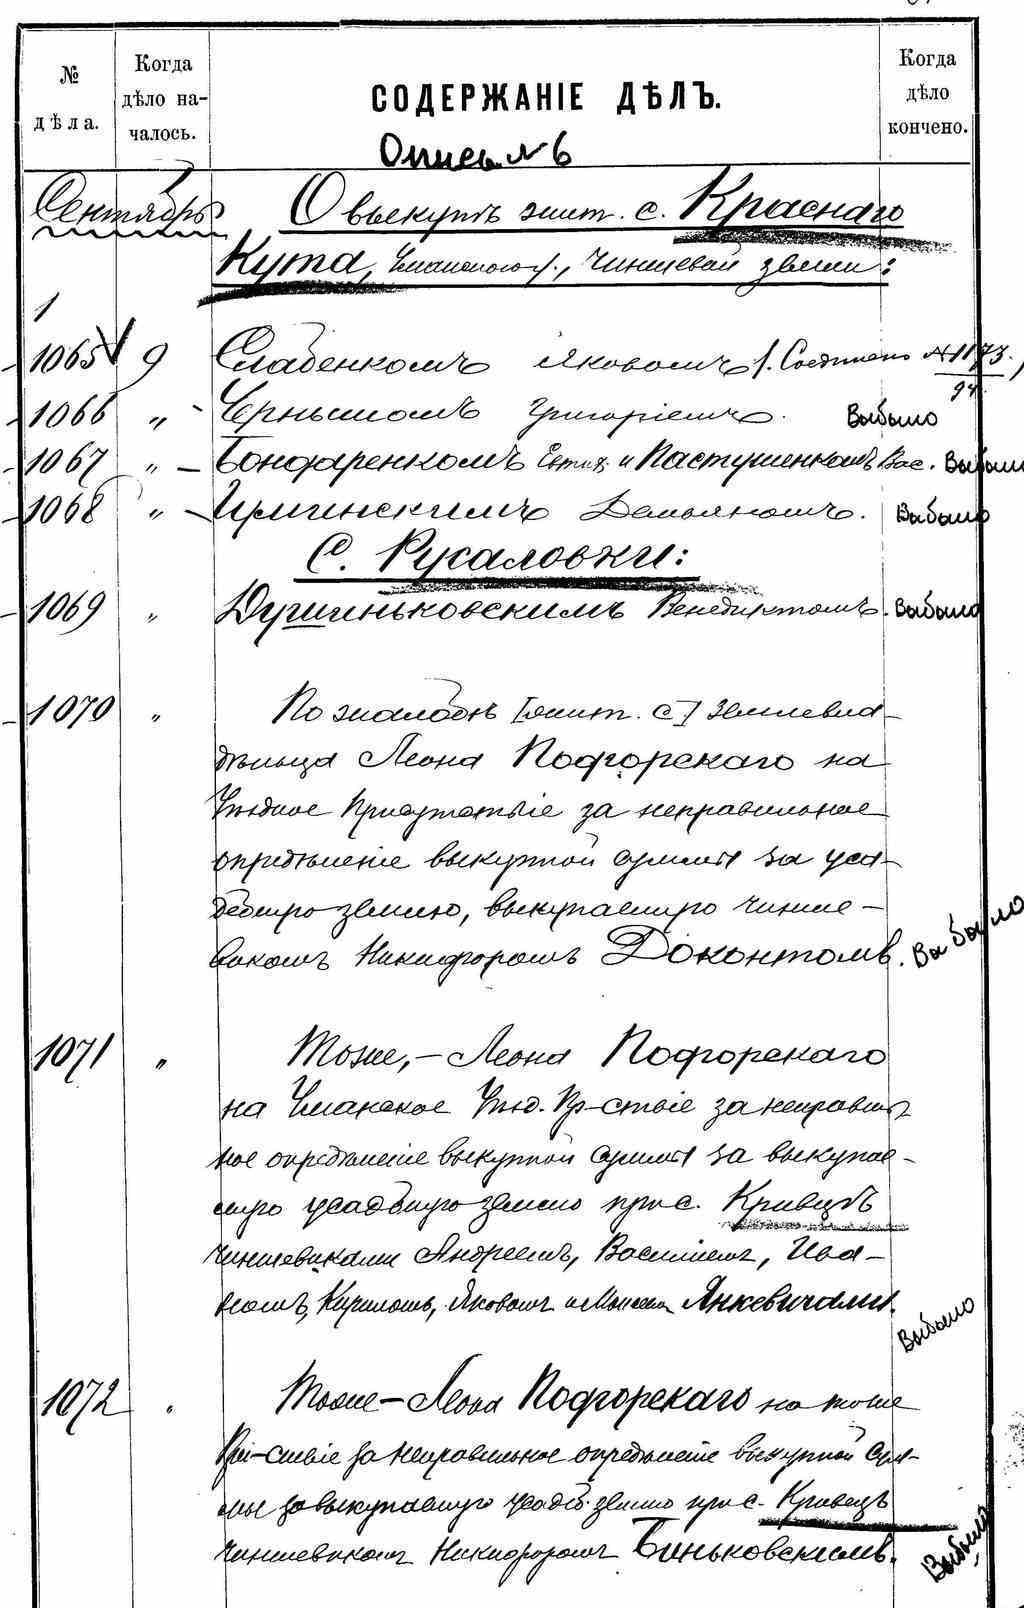 № дѣла.
Когда дѣло началось.
СОДЕРЖАНІЕ ДѢЛЪ.
Когда дѣло кончено.
Опись № 6
Сентябрь
О выкупѣ жит. с. Краснаго
Кута, Уманскаго у., чиншевой земли:
1
1065 9 Слабенкомъ Яковомъ /. Соединено №1173.
94.
1066 „ Чернышомъ Григоріемъ. Выбыло
1067 „ – Бондаренкомъ и Пастушенкомъ Вас. Выбыло
1068 „ – Демьяномъ. Выбыло
С. Русаловки:
1069 „ Венедиктомъ. Выбыло
1070 „ По жалобѣ [жит. с.] землевла-
дѣльца Леона Подгорскаго на
Уѣздное Присутствіе за неправильное
опредѣленіе выкупной суммы за уса-
дебную землю, выкупаемую чинше-
викомъ Никифоромъ Доконтомъ. Выбыло
1071 „ Тоже, – Леона Подгорскаго
на Уманское Уѣзд. Пр-ствіе за неправиль
ное опредѣленіе выкупной суммы за выкупае-
мую усадьбную землю при с. Кривецъ
чиншевиками Андреемъ, Василіемъ, Ива-
номъ, Кириломъ, Яковомъ и Янкевичами.
Выбыло
1072 „ Тоже – Леона Подгорскаго на тоже
При-ствіе за неправильное опредѣленіе выкупной сум-
мы за выкупаемую усадеб. землю при с. Кривецъ
чиншевикомъ Никифоромъ Биньковскимъ. Выбыло